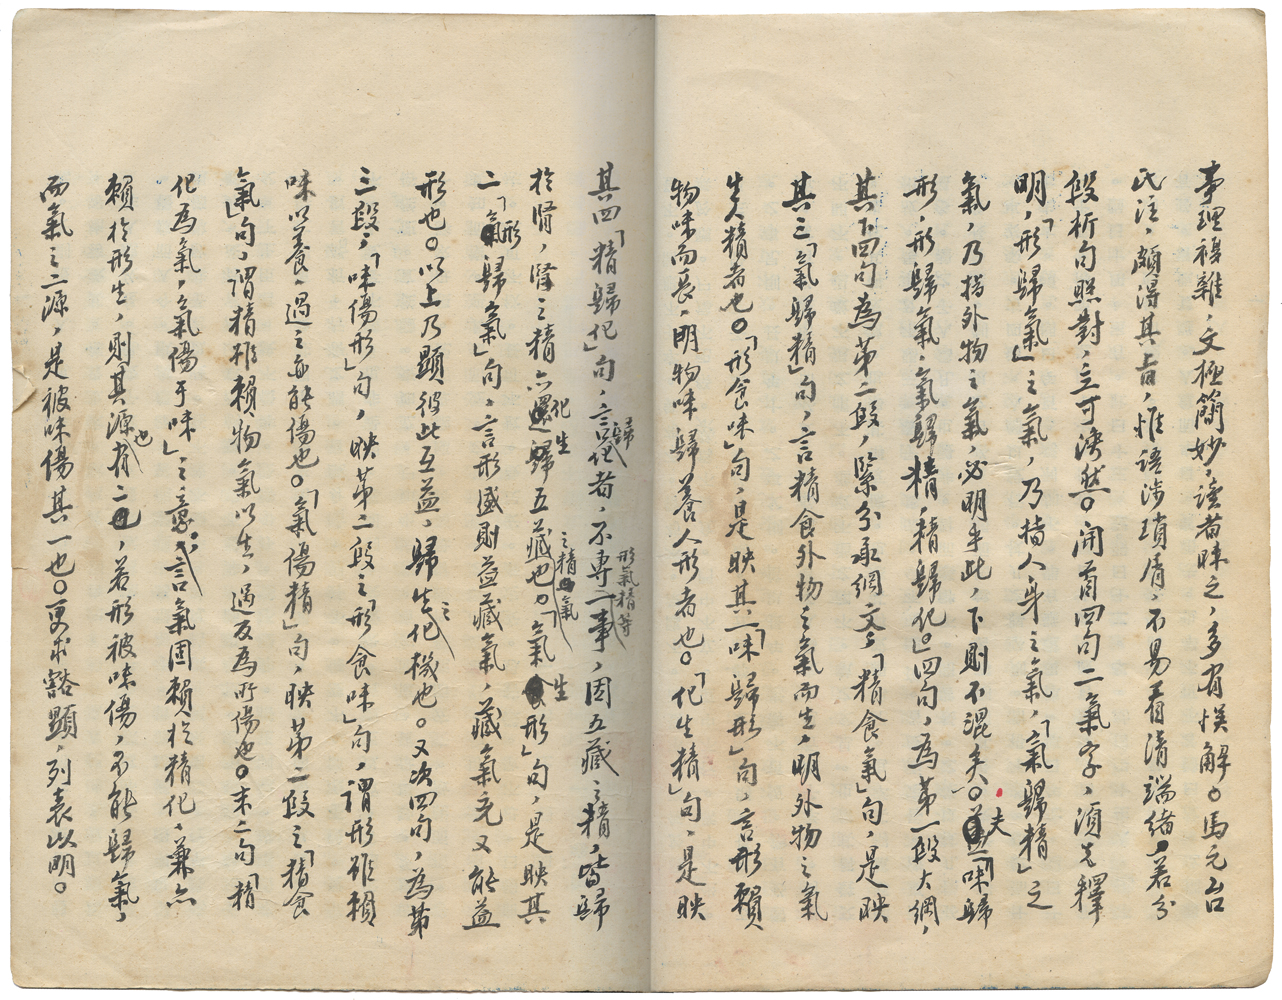 事理複雜，文極簡妙，讀者昧之，多有悞解。馬元台
氏注，頗得其旨，惟語涉瑣屑，不易看清端緒，若分
段析句照對，立可渙然。開首四句二氣字，須先釋
明，「形歸氣」之氣，乃指人身之氣，「氣歸精」之
氣，乃指外物之氣，必明乎此，下則不混矣。夫「味歸
形，形歸氣，氣歸精，精歸化」四句，為第一段大綱，
其下四句為第二段，緊分承綱文，「精食氣」句，是映
其三「氣歸精」句，言精食外物之氣而生，明外物之氣
生人精者也。「形食味」句，是映其一「味歸形」句，言形賴
物味而長，明物味歸養人形者也。「化生精」句，是映
其四「精歸化」句，言歸化者，不專形氣精等二事，固五藏之精，皆歸
於腎，腎之精亦還歸化生五藏之精氣也。「氣生形」句，是映其
二「形歸氣」句，言形盛則益藏氣，藏氣充又能益
形也。以上乃顯彼此互益，歸生化之機也。又次四句，為第
三段，「味傷形」句，映第二段之「形食味」句，謂形雖賴
味以養，過之亦能傷也。「氣傷精」句，映第二段之「精食
氣」句，謂精雖賴物氣以生，過反為所傷也。末二句「精
化為氣，氣傷于味」之意，言氣固賴於精化，兼亦
賴於形生，則其源有二也，若形被味傷，不能歸氣，
而氣之二源，是被味傷其一也。更求豁顯，列表以明。